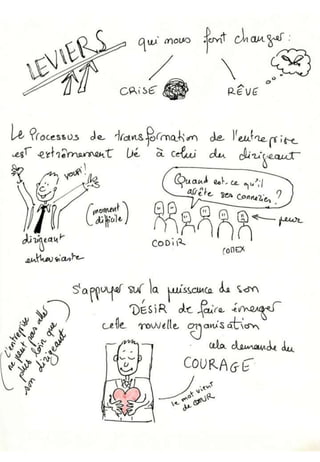 LEVIERS qui nous font changer :
CRISE
RÊVE
Le Processus de transformation de l'entreprise
est extrêmement lié à celui du dirigeant
YOUPI!
Quand est-ce qu'il
arrête ses conneries ?
(moment
difficile)
peur
dirigeant
enthousiaste
CODIR
CODEX
S'appuyer sur la puissance de son
DÉSIR de faire émerger
cette nouvelle organisation
cela demande du
COURAGE
L'entreprise
ne peut pas aller
plus loin que
son dirigeant
le mot vient
de CŒUR